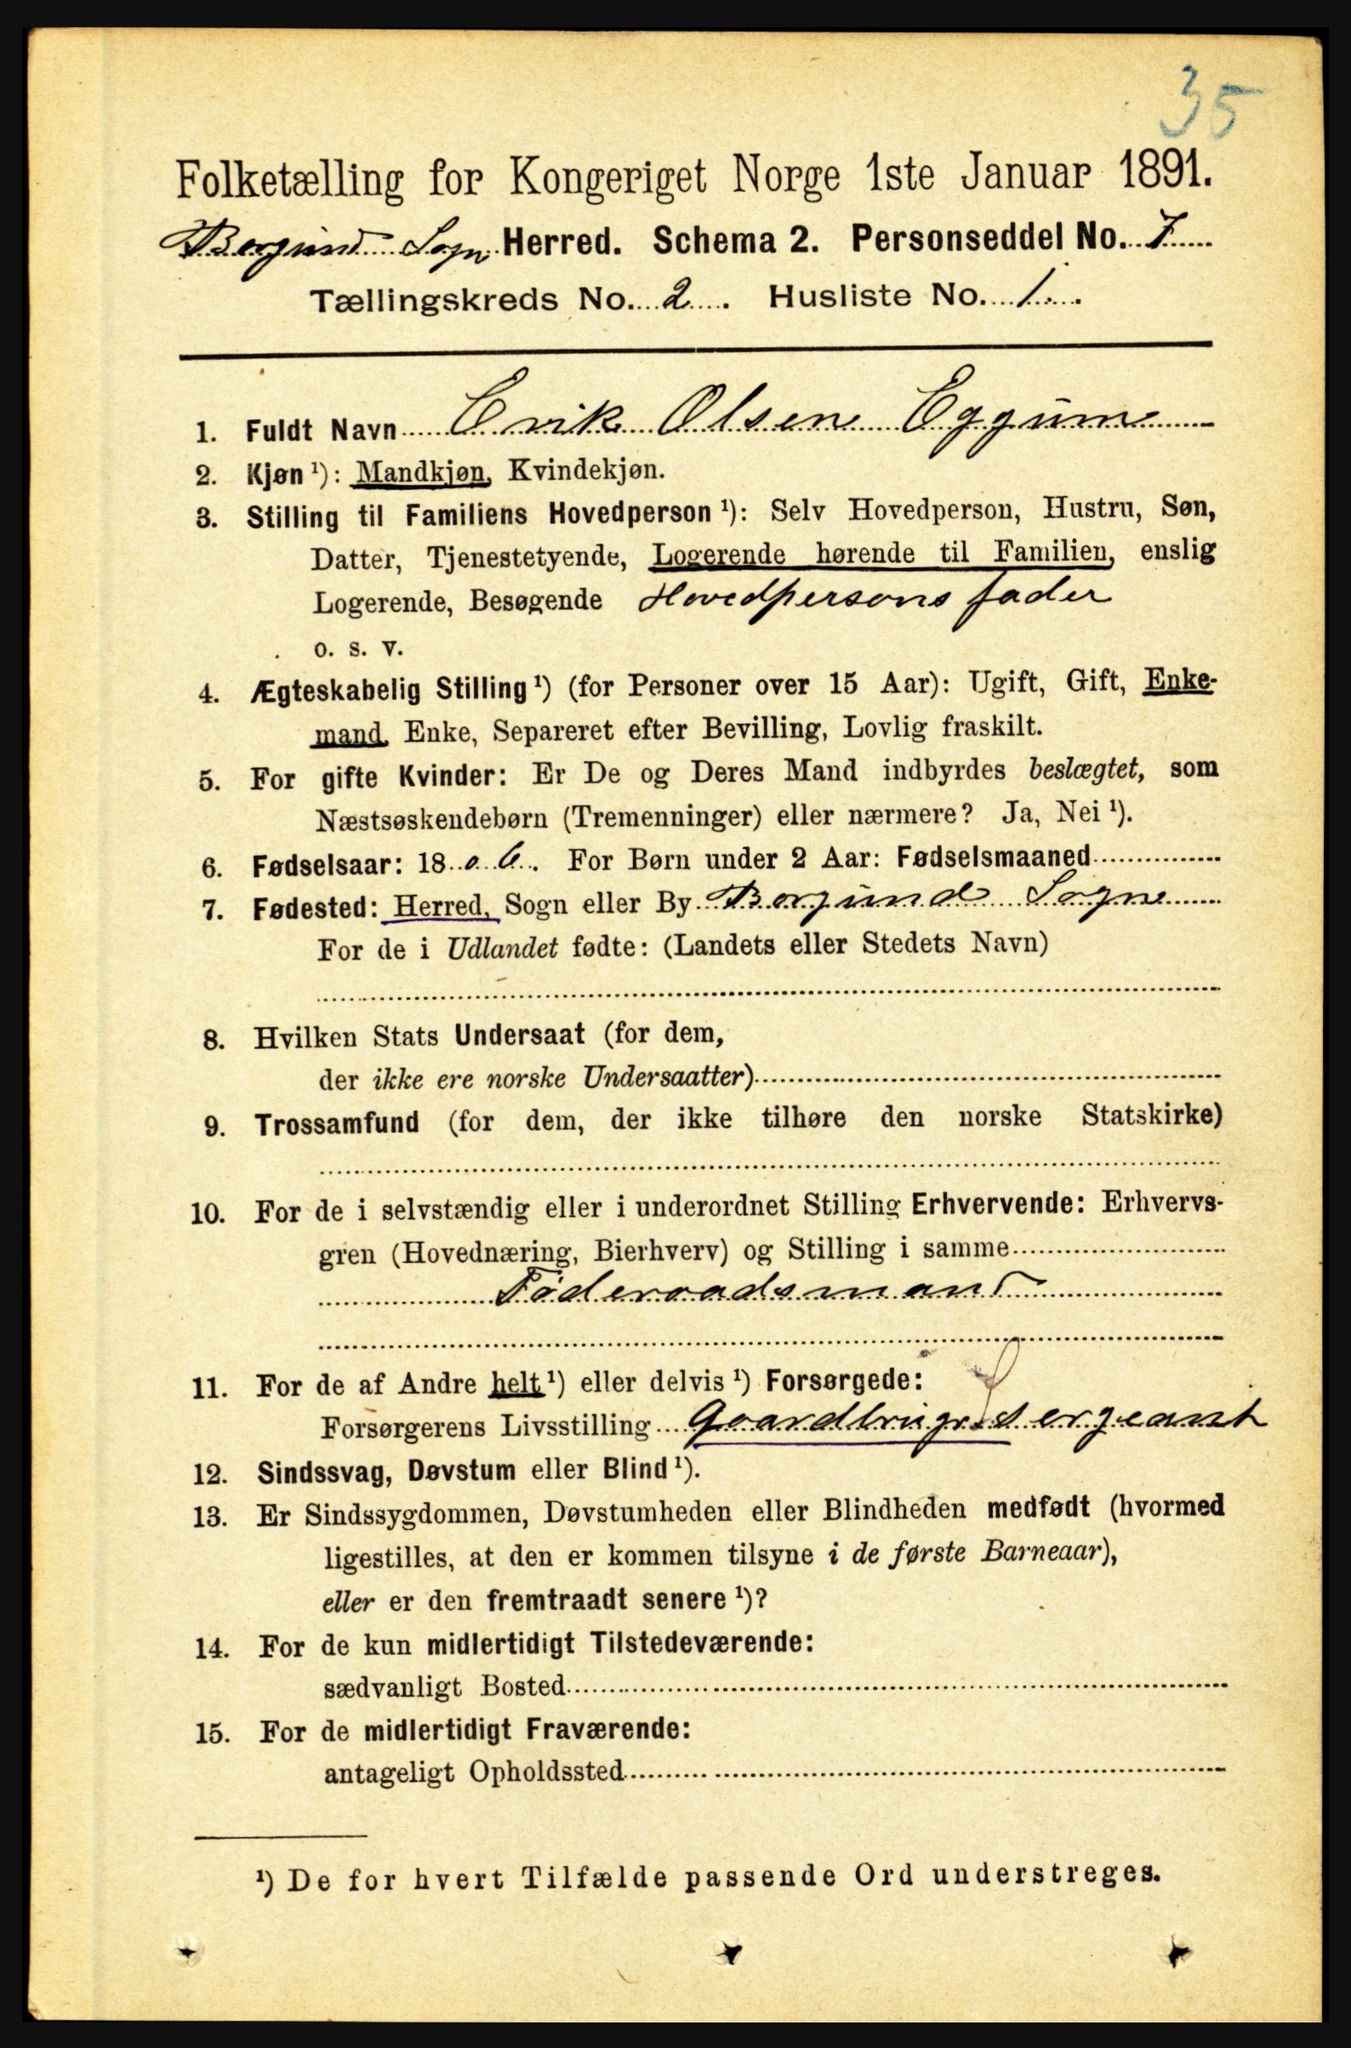 35
Folketælling for Kongeriget Norge 1ste Januar 1891.
Borgund Sogn Herred. Schema 2. Personseddel No. 7
Tællingskreds No. 2. Husliste No. 1.
1. Fuldt Navn Erik Olsen Eggum
2. Kjøn ¹): Mandkjøn, Kvindekjøn.
3. Stilling til Familiens Hovedperson ¹): Selv Hovedperson, Hustru, Søn,
Datter, Tjenestetyende, Logerende hørende til Familien, enslig
Logerende, Besøgende Hovedpersons fader
o. s. v.
4. Ægteskabelig Stilling ¹) (for Personer over 15 Aar): Ugift, Gift, Enke-
mand, Enke, Separeret efter Bevilling, Lovlig fraskilt.
5. For gifte Kvinder: Er De og Deres Mand indbyrdes beslægtet, som
Næstsøskendebørn (Tremenninger) eller nærmere? Ja, Nei ¹).
6. Fødselsaar: 1806. For Børn under 2 Aar: Fødselsmaaned
7. Fødested: Herred, Sogn eller By Borgund Sogn
For de i Udlandet fødte: (Landets eller Stedets Navn)
8. Hvilken Stats Undersaat (for dem,
der ikke ere norske Undersaatter)
9. Trossamfund (for dem, der ikke tilhøre den norske Statskirke)
10. For de i selvstændig eller i underordnet Stilling Erhvervende: Erhvervs-
gren (Hovednæring, Bierhverv) og Stilling i samme
Føderaadsmand
11. For de af Andre helt ¹) eller delvis ¹) Forsørgede:
Forsørgerens Livsstilling Gaardbruger Sergeant
12. Sindssvag, Døvstum eller Blind ¹).
13. Er Sindssygdommen, Døvstumheden eller Blindheden medfødt (hvormed
ligestilles, at den er kommen tilsyne i de første Barneaar),
eller er den fremtraadt senere ¹)?
14. For de kun midlertidigt Tilstedeværende:
sædvanligt Bosted
15. For de midlertidigt Fraværende:
antageligt Opholdssted
¹) De for hvert Tilfælde passende Ord understreges.